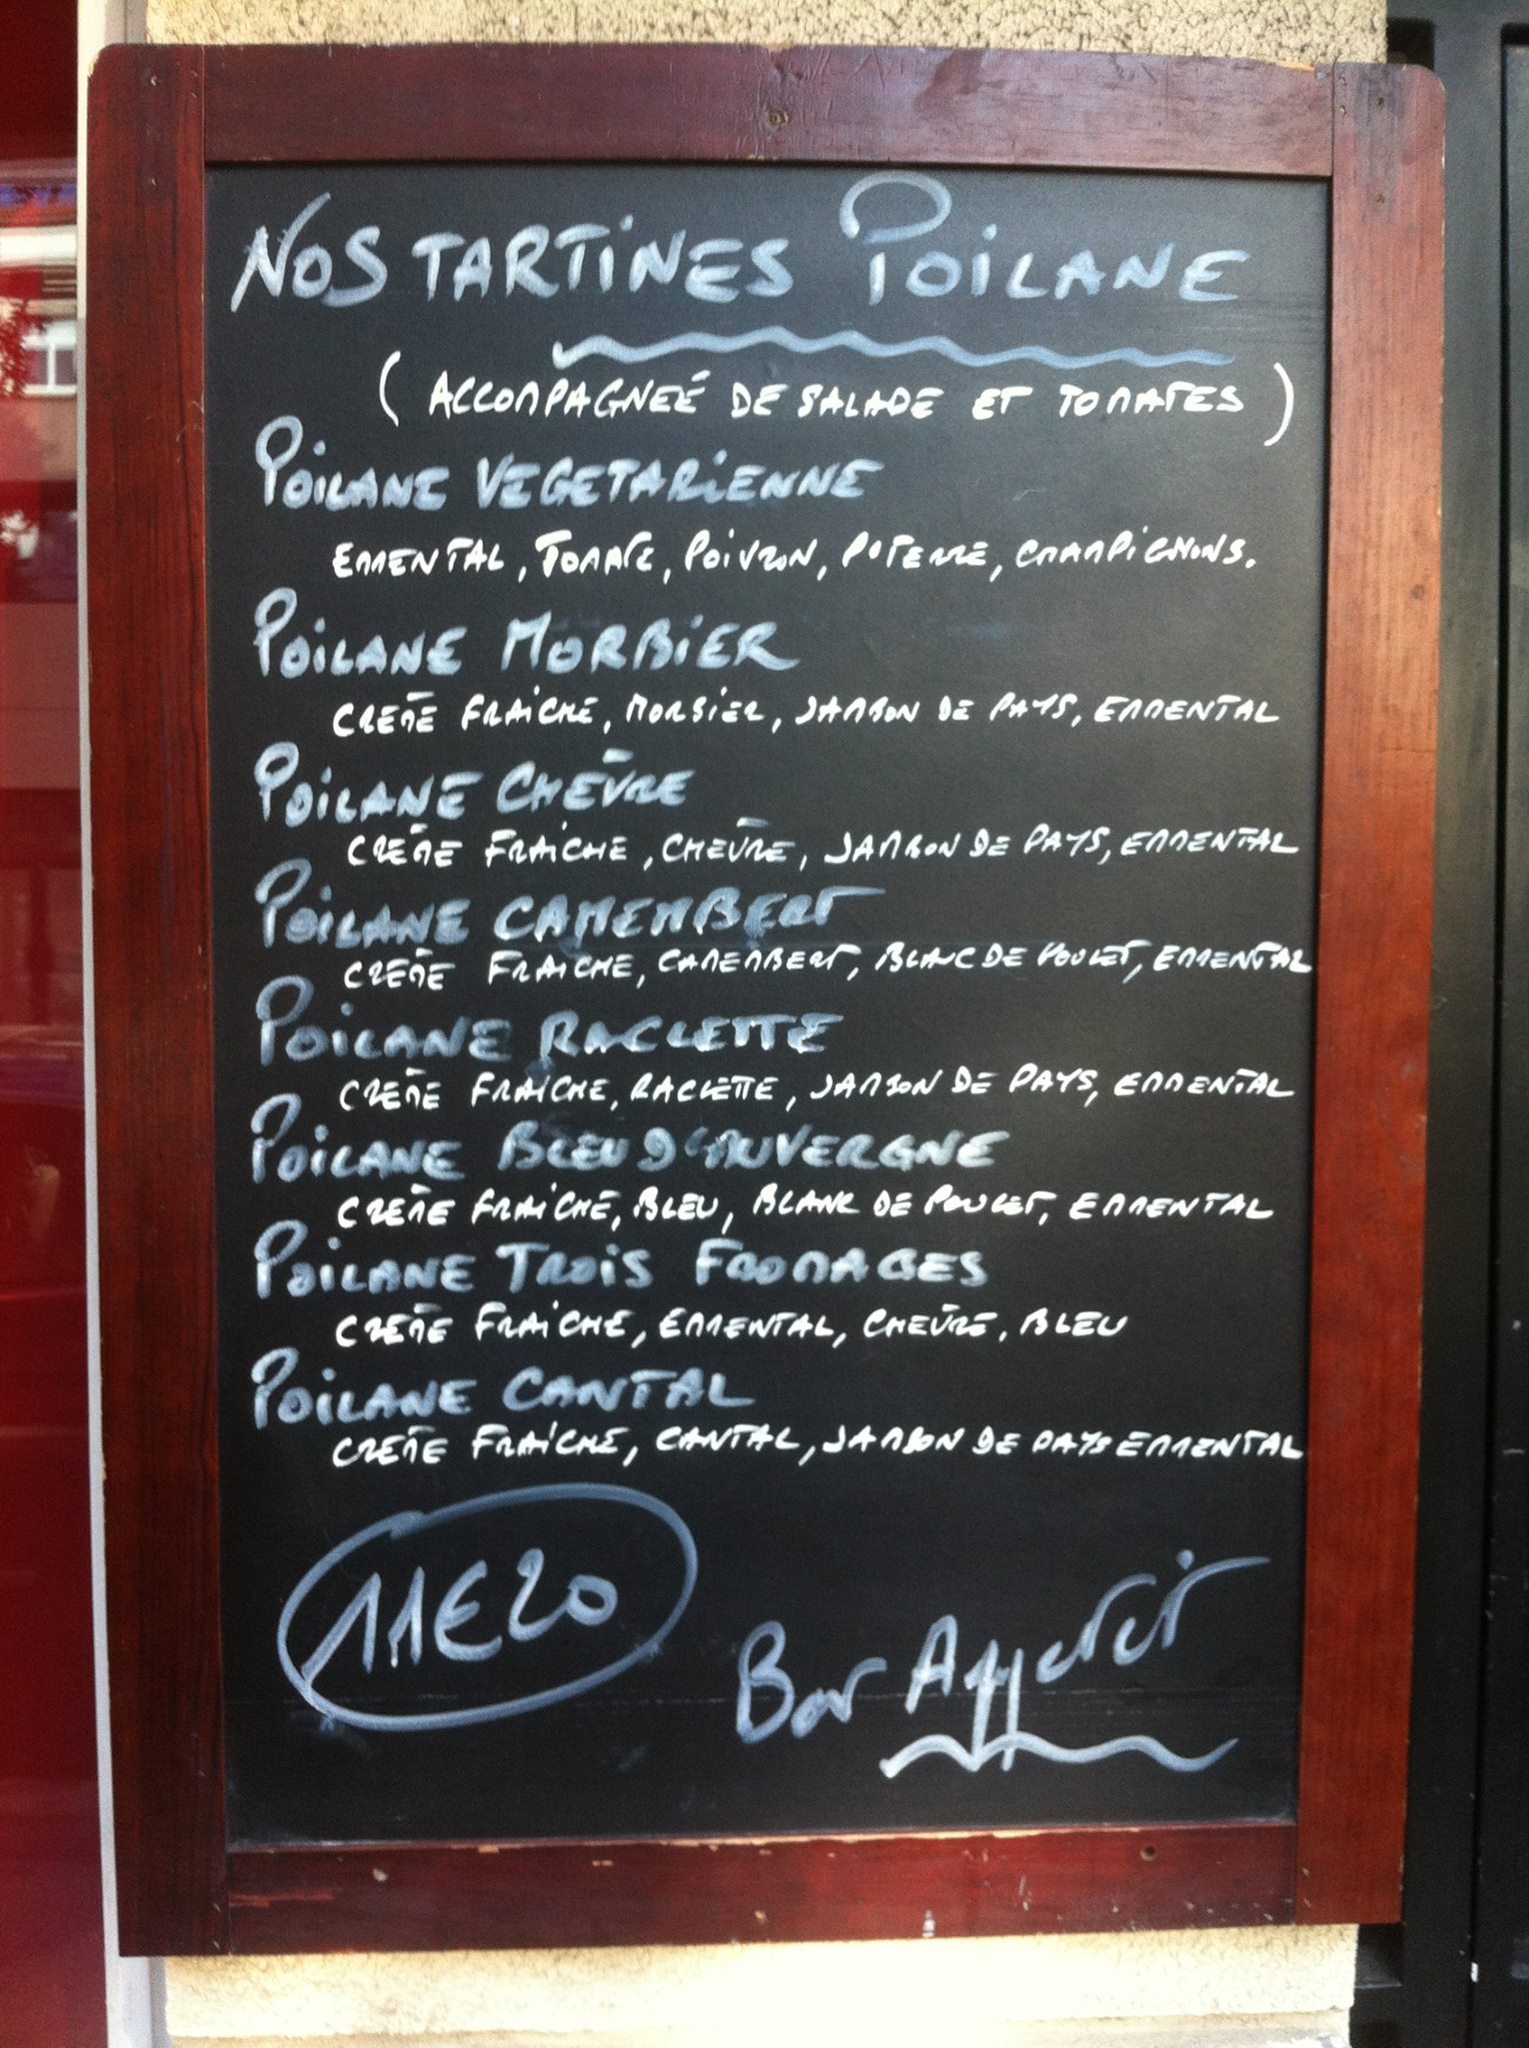 NOS TARTINES POILANE
( ACCOMPAGNEÉ DE SALADE ET TOMATES )
POILANE VEGETARIENNE
EMMENTAL, TOMATE, POIVRON, P DE TERRE, CHAMPIGNONS.
POILANE MORBIER
CRÈME FRAICHE, MORBIER, JAMBON DE PAYS, EMMENTAL
POILANE CHÈVRE
CRÈME FRAICHE, CHÈVRE, JAMBON DE PAYS, EMMENTAL
POILANE CAMEMBERT
CRÈME FRAICHE, CAMEMBERT, BLANC DE POULET, EMMENTAL
POILANE RACLETTE
CRÈME FRAICHE, RACLETTE, JAMBON DE PAYS, EMMENTAL
POILANE BLEU D'AUVERGNE
CRÈME FRAICHE, BLEU, BLANC DE POULET, EMMENTAL
POILANE TROIS FROMAGES
CRÈME FRAICHE, EMMENTAL, CHÈVRE, BLEU
POILANE CANTAL
CRÈME FRAICHE, CANTAL, JAMBON DE PAYS EMMENTAL
11€20
Bon Appetit